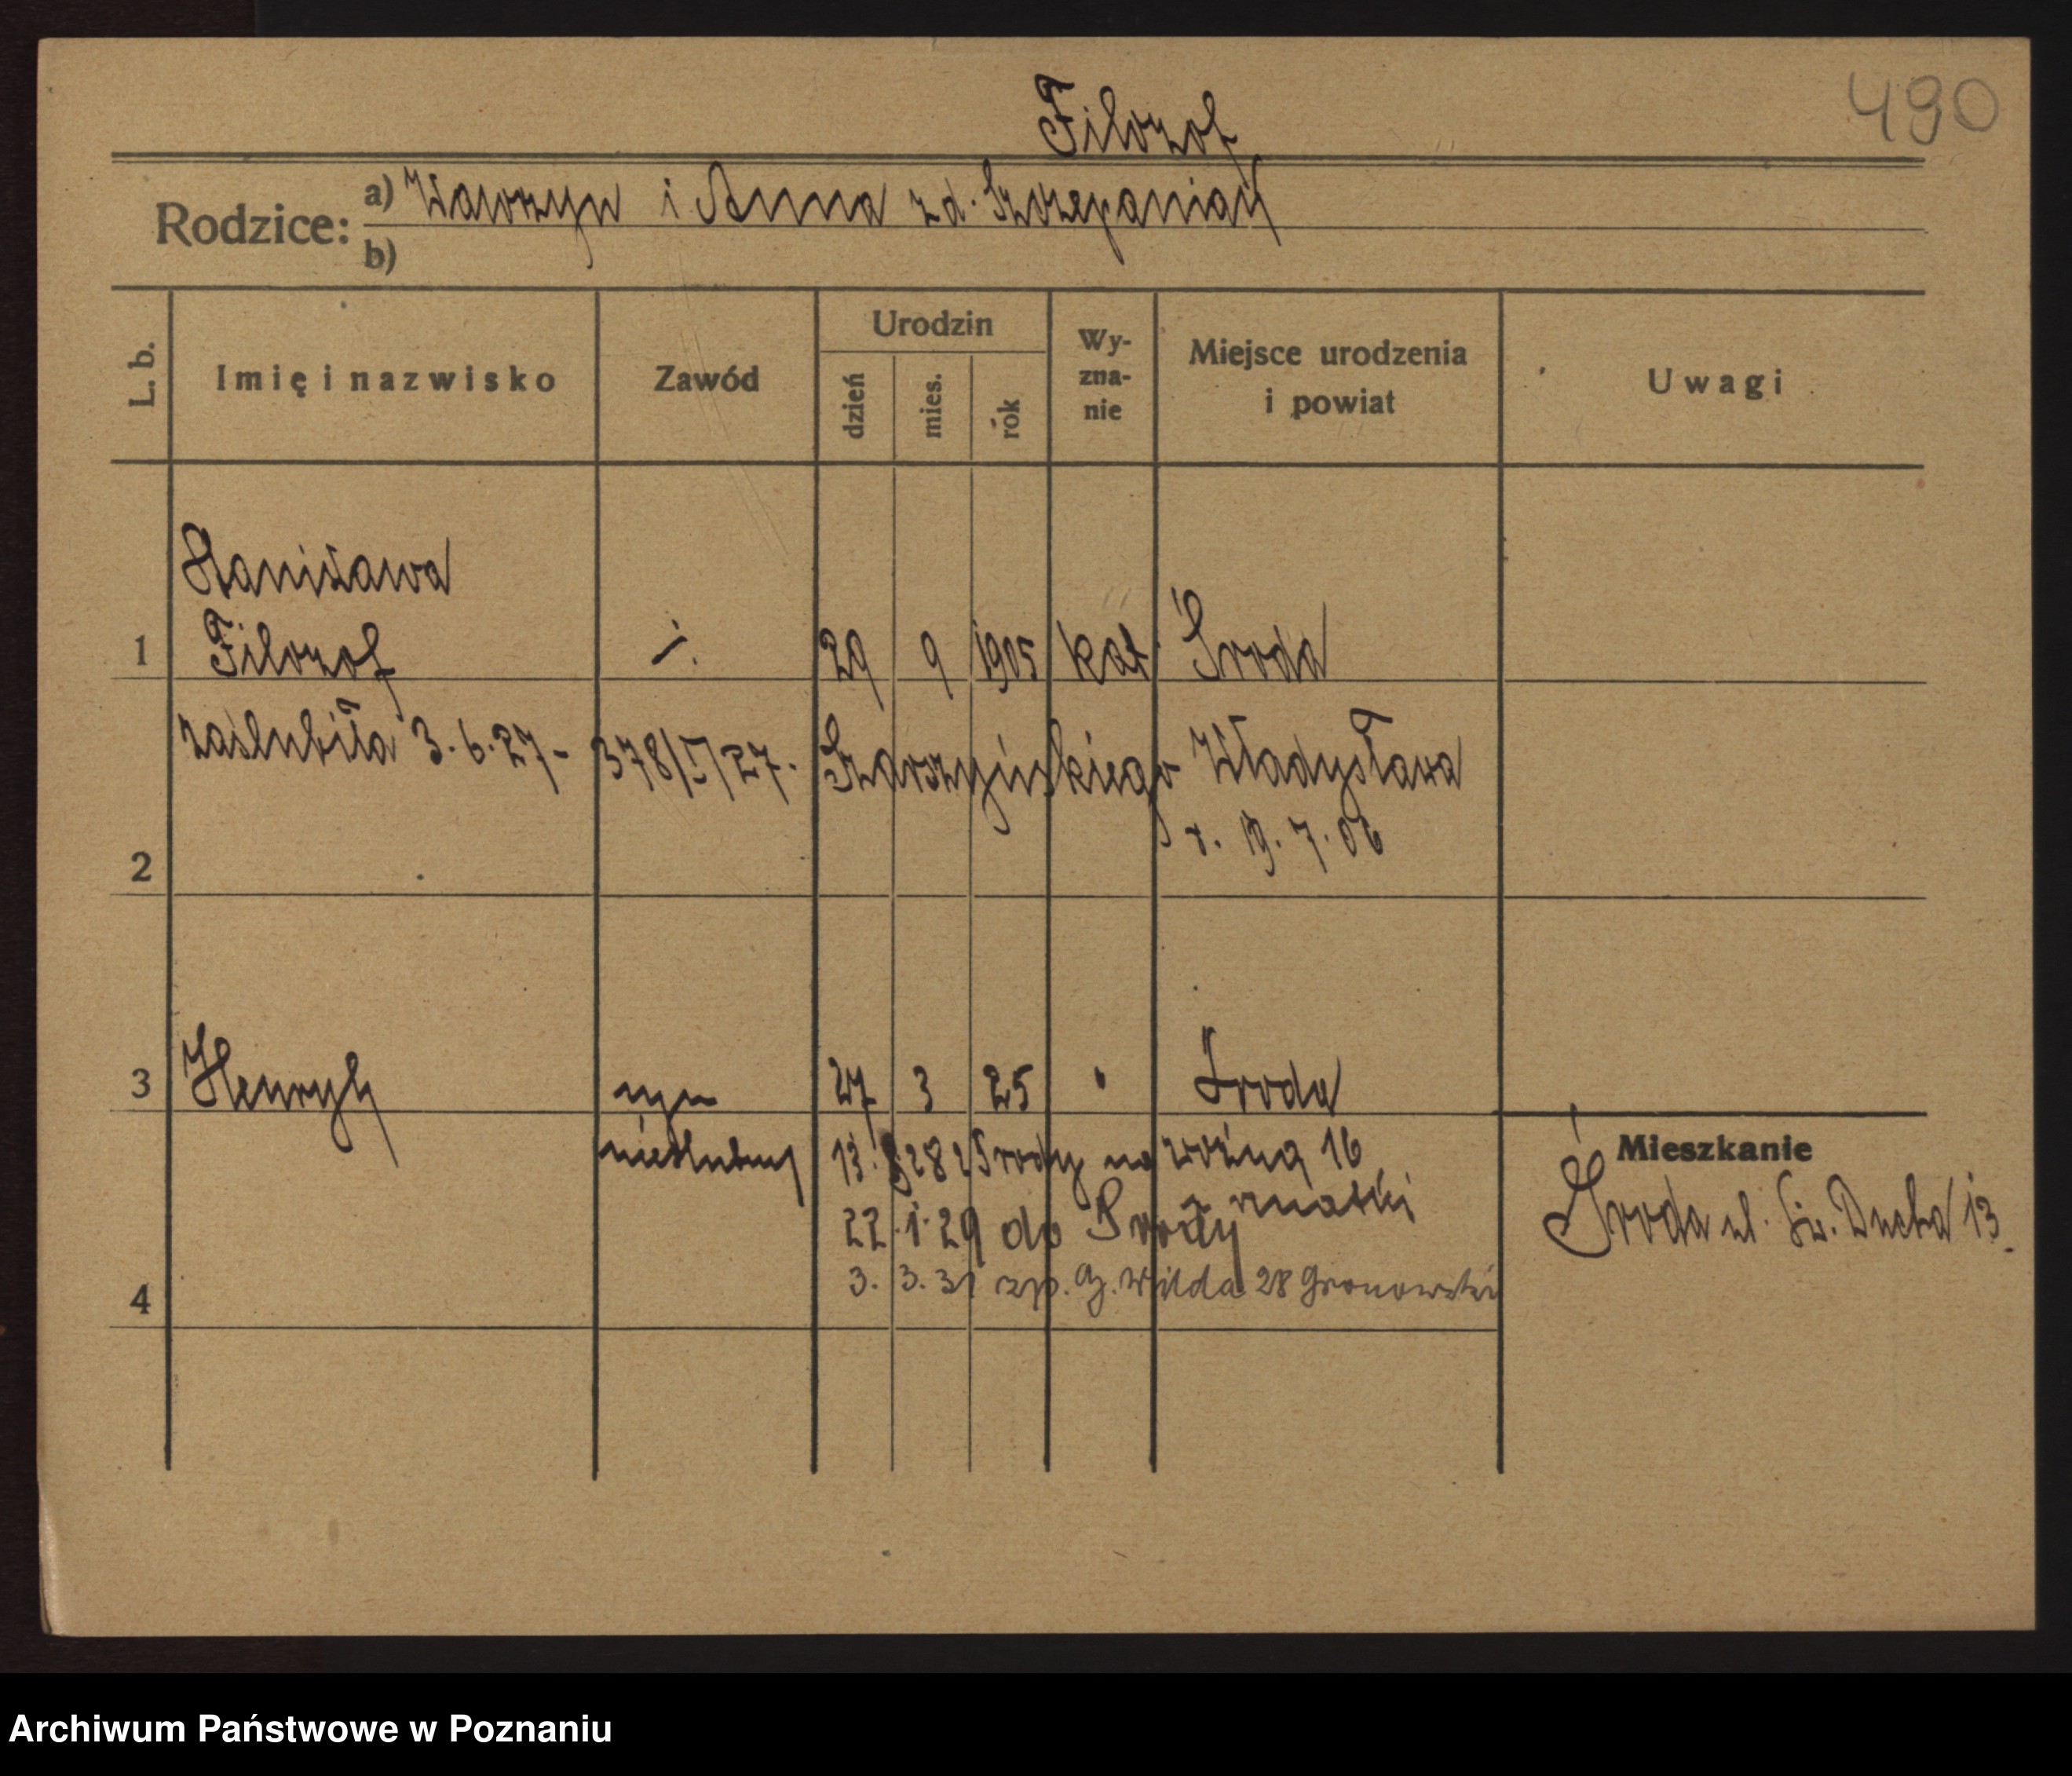 490
Filozof
Rodzice: a) Wawrzyn i Anna zd. Szczepaniak
b)
L. b. Imię i nazwisko Zawód Urodzin dzień mies. rok Wy-zna-nie Miejsce urodzenia i powiat Uwagi
Stanisława
1 Filozof j. 29 9 1905 kat. Środa
zaślubiła 3.6.27 - 378/I/27. Władysława
r. 19.7.06
2
3 Henryk syn 27 3 25 " Środa
nieślubny 13. 28 z Środy na 16
Mieszkanie
z matki
22.1.29 do Środy
Środa ul. Św. Ducha 13.
3. 3. 31 zp. G. Wilda 28 Gronowski
4
Archiwum Państwowe w Poznaniu